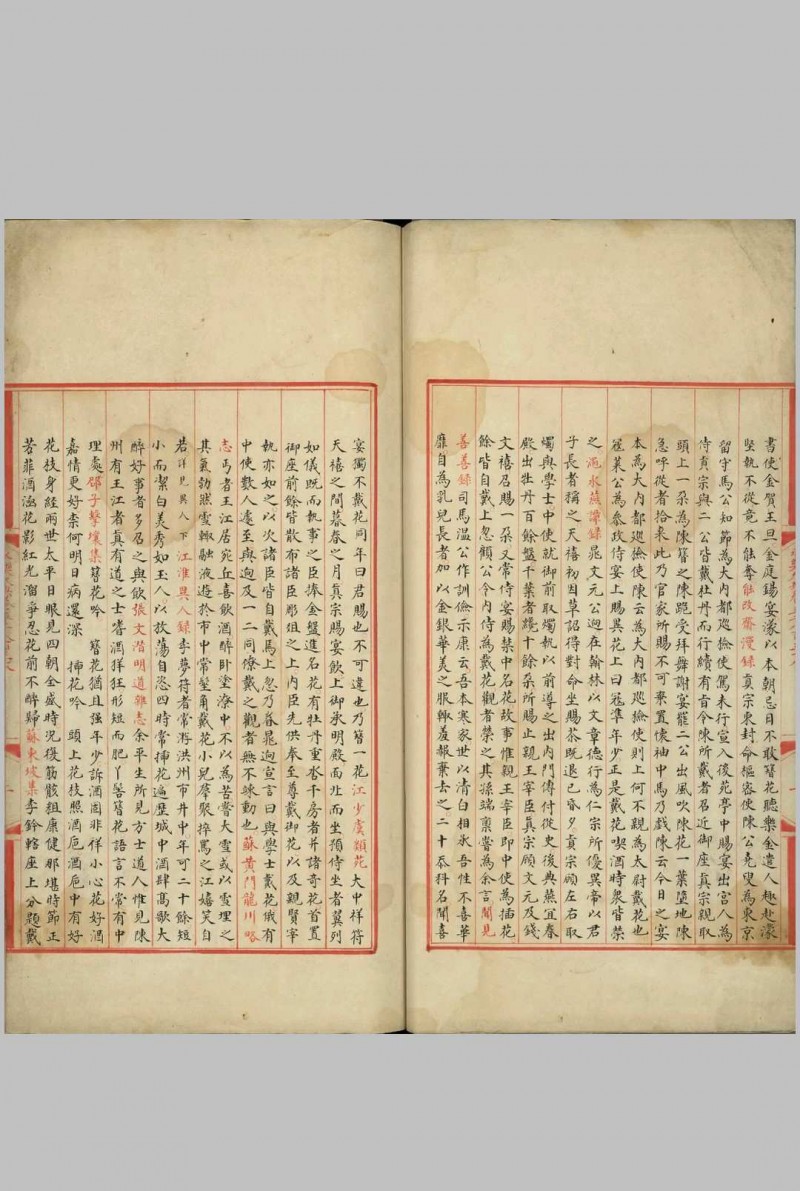 書使金賀王旦金庭錫宴濛以本朝忌日不敢簪花聽樂金遣人趣赴濛
堅執不從竟不能奪能改齋漫錄真宗東封命樞密使陳公堯叟為東京
留守馬公知節為大內都巡撿使駕未行宣入後苑亭中賜宴出宮人為
侍真宗與二公皆戴牡丹而行續有旨令陳所戴者召近御座真宗親取
頭上一朵為陳簪之陳跪受拜舞謝宴罷二公出風吹陳花一葉墮地陳
急呼從者拾來此乃官家所賜不可棄置懷袖中馬乃戲陳云今日之宴
本為大內都巡撿使陳云為大內都巡撿使則上何不親為太尉戴花也
寇萊公為叅政侍宴上賜異花上曰寇準年少正是戴花喫酒時衆皆榮
之澠水燕譚錄晁文元公迥在翰林以文章德行為仁宗所優異帝以君
子長者稱之天禧初因草詔得對命坐賜茶既退已昏夕真宗顧左右取
燭與學士中使就御前取燭執以前導之出內門傳付從史後與燕宜春
殿出牡丹百餘盤千葉者纔十餘朵所賜止親王宰臣真宗顧文元及錢
文禧各賜一朵又常侍宴賜禁中名花故事惟親王宰臣即中使為插花
餘皆自戴上忽顧公令內侍為戴花觀者榮之其孫端稟嘗為余言聞見
善善錄司馬溫公作訓儉示康云吾本寒家世以清白相承吾性不喜華
靡自為乳兒長者加以金銀華美之服輒羞赧棄去之二十忝科名聞喜
宴獨不戴花同年曰君賜也不可違也乃簪一花江少虞類苑大中祥符
天禧之間暮春之月真宗賜宴飲上御承明殿面北而坐預侍坐者翼列
如儀既而執事之臣捧金盤進名花有牡丹重沓千房者并諸奇花首置
御座前餘皆散布諸臣彫俎之上內臣先供奉至尊戴御花以及親賢宰
執亦如之以次諸臣皆自戴焉上忽乃眷晁迥宣言曰與學士戴花俄有
中使數人遽至與迥及一二同僚戴之觀者無不竦動也蘇黃門龍川略
志丐者王江居宛丘喜飲酒醉卧塗潦中不以為苦嘗大雪或以雪埋之
其氣勃然雪輒融液遊於市中常髽角戴花小兒羣聚捽罵之江嬉笑自
若詳見異人下江淮異人錄李夢符者常游洪州市井中年可二十餘短
小而潔白美秀如玉人以放蕩自恣四時常插花遍歷城中酒肆高歌大
醉好事者多召之與飲張文潛明道雜志余平生所見方士道人惟見陳
州有王江者真有道之士嗜酒佯狂形短而肥丫髻簪花語言不常有中
理處邵子擊壤集簪花吟 簪花猶且强年少訴酒固非佯小心花好酒
嘉情更好柰何明日病還深 插花吟 頭上花枝照酒卮酒卮中有好
花枝身經兩世太平日眼見四朝全盛時況復筋骸粗康健那堪時節正
芳菲酒涵花影紅光溜爭忍花前不醉歸蘇東坡集李鈐轄座上分題戴